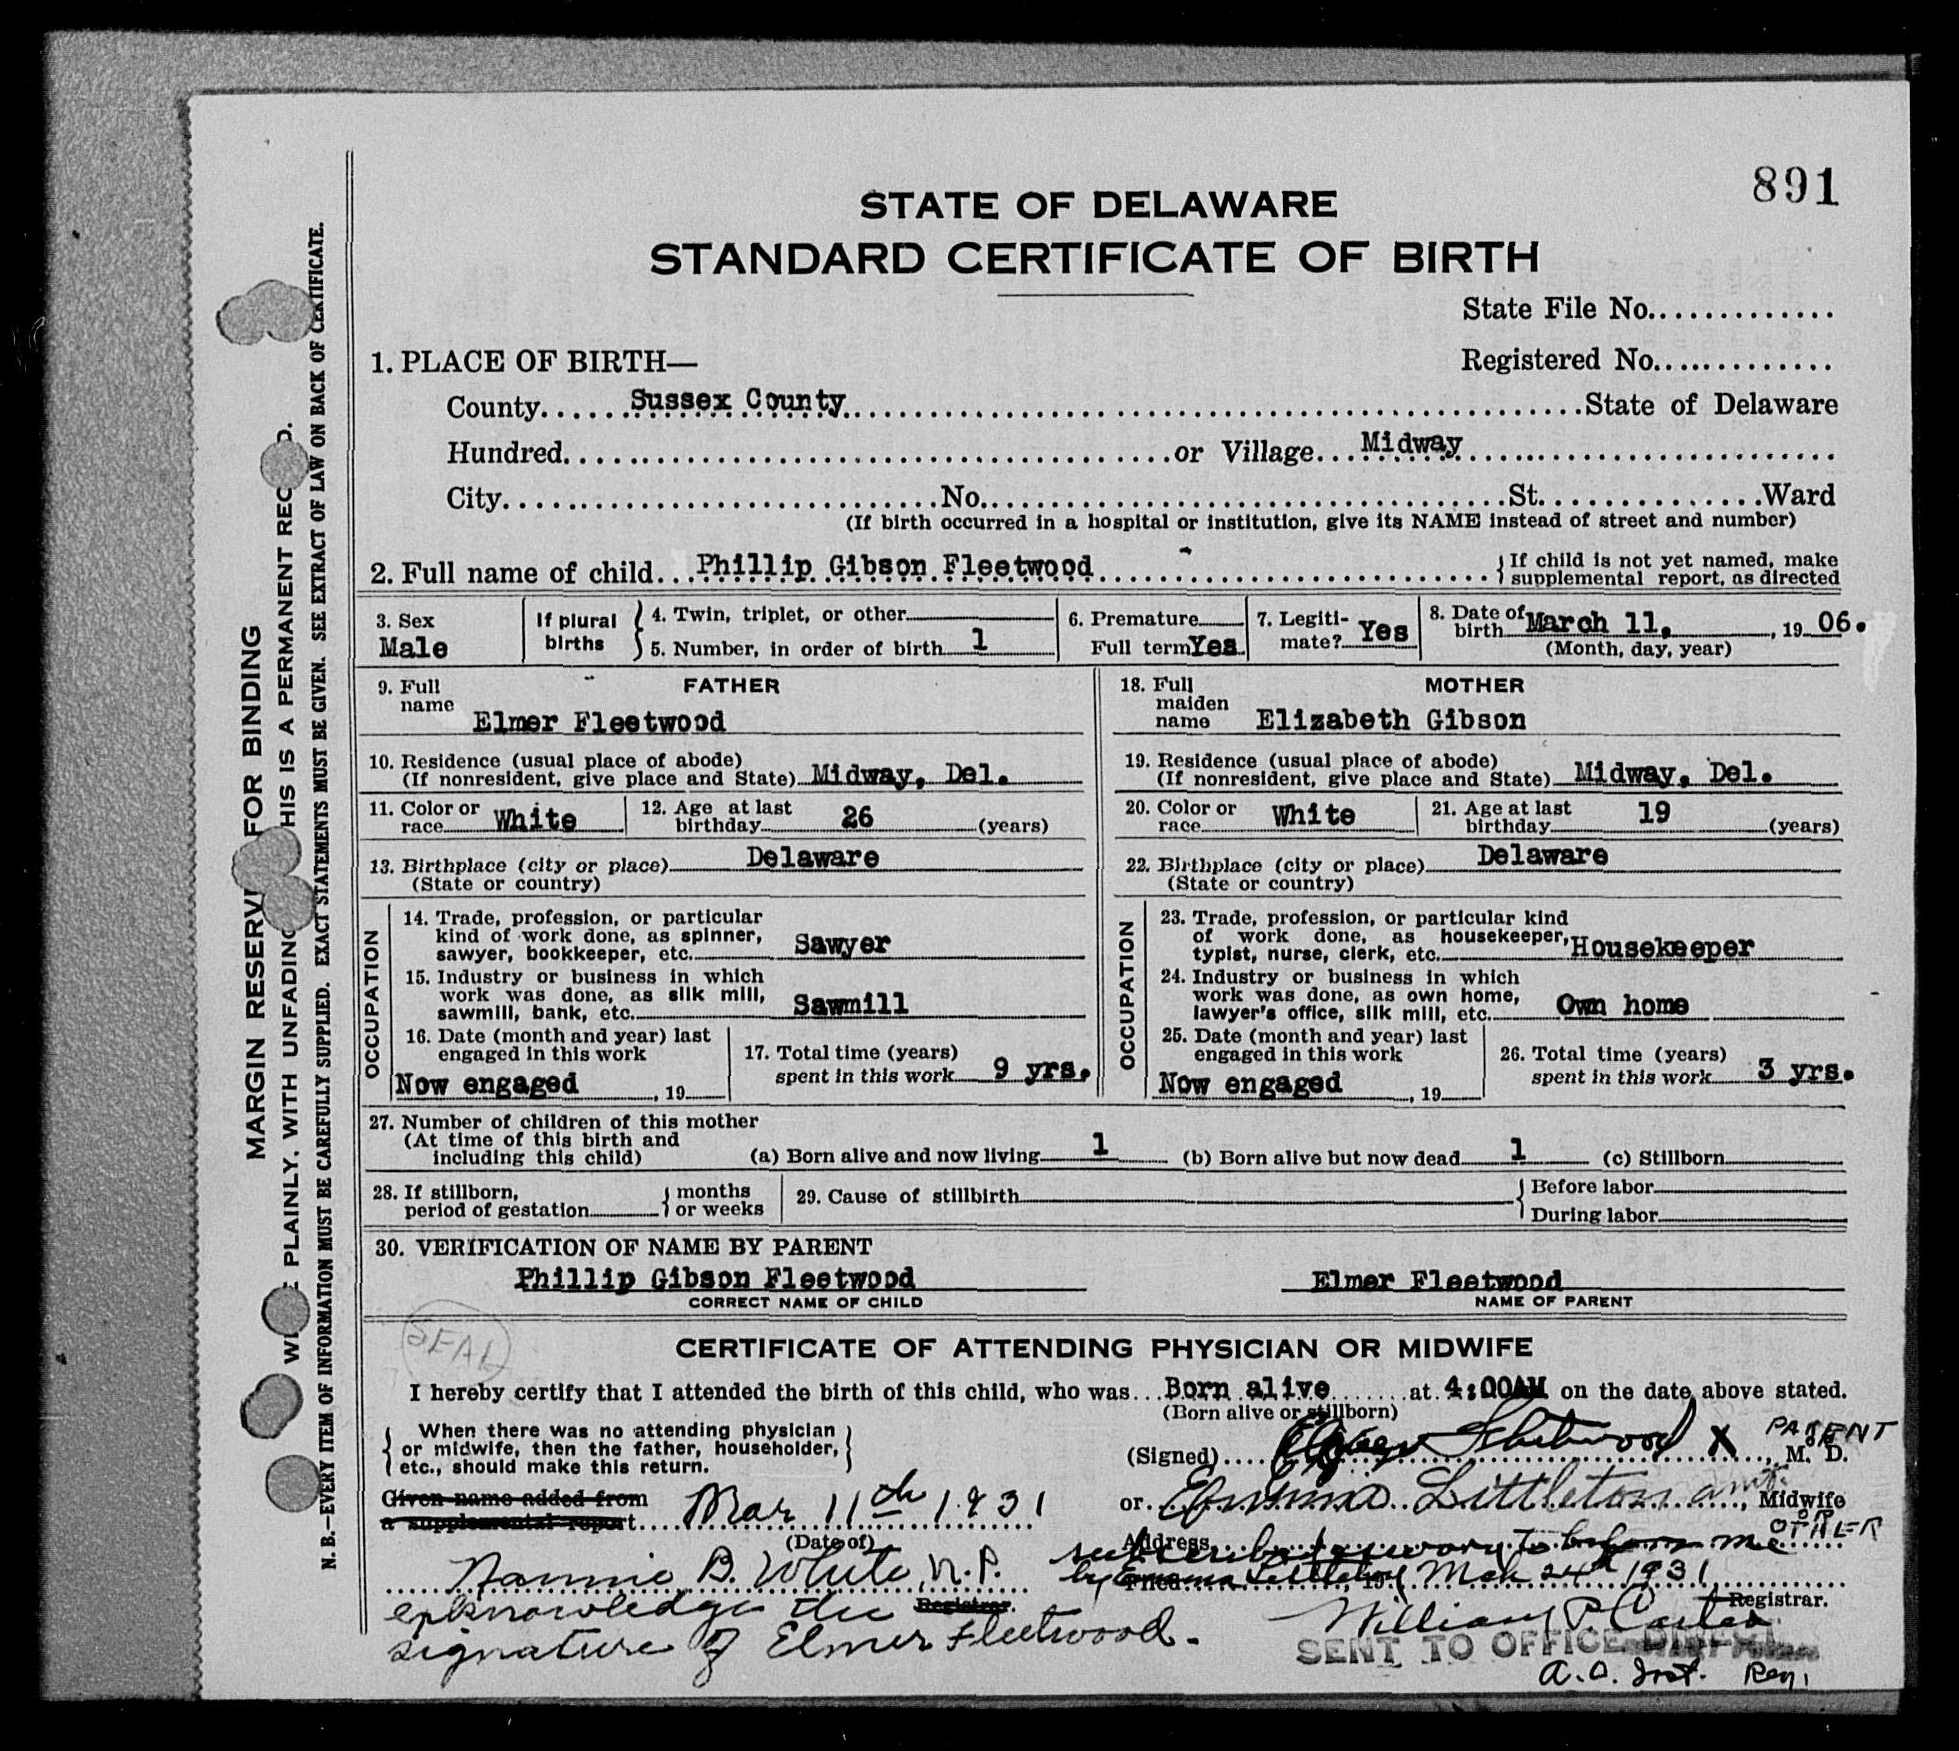 891
STATE OF DELAWARE
STANDARD CERTIFICATE OF BIRTH
State File No.
1. PLACE OF BIRTH—
Registered No.
County Sussex County State of Delaware
Hundred or Village Midway
City No. St. Ward
(If birth occurred in a hospital or institution, give its NAME instead of street and number)
2. Full name of child Phillip Gibson Fleetwood { If child is not yet named, make supplemental report, as directed
3. Sex Male
If plural births { 4. Twin, triplet, or other
5. Number, in order of birth 1
6. Premature
Full term Yes
7. Legitimate? Yes
8. Date of birth March 11, , 19 06.
(Month, day, year)
FATHER
9. Full name Elmer Fleetwood
10. Residence (usual place of abode)
(If nonresident, give place and State) Midway, Del.
11. Color or race White
12. Age at last birthday 26 (years)
13. Birthplace (city or place) Delaware
(State or country)
OCCUPATION
14. Trade, profession, or particular
kind of work done, as spinner,
sawyer, bookkeeper, etc. Sawyer
15. Industry or business in which
work was done, as silk mill,
sawmill, bank, etc. Sawmill
16. Date (month and year) last
engaged in this work
Now engaged , 19
17. Total time (years)
spent in this work 9 yrs.
MOTHER
18. Full maiden name Elizabeth Gibson
19. Residence (usual place of abode)
(If nonresident, give place and State) Midway, Del.
20. Color or race White
21. Age at last birthday 19 (years)
22. Birthplace (city or place) Delaware
(State or country)
OCCUPATION
23. Trade, profession, or particular kind
of work done, as housekeeper,
typist, nurse, clerk, etc. Housekeeper
24. Industry or business in which
work was done, as own home,
lawyer's office, silk mill, etc. Own home
25. Date (month and year) last
engaged in this work
Now engaged , 19
26. Total time (years)
spent in this work 3 yrs.
27. Number of children of this mother
(At time of this birth and
including this child) (a) Born alive and now living 1 (b) Born alive but now dead 1 (c) Stillborn
28. If stillborn,
period of gestation { months or weeks
29. Cause of stillbirth { Before labor
During labor
30. VERIFICATION OF NAME BY PARENT
Phillip Gibson Fleetwood Elmer Fleetwood
CORRECT NAME OF CHILD NAME OF PARENT
SEAL
CERTIFICATE OF ATTENDING PHYSICIAN OR MIDWIFE
I hereby certify that I attended the birth of this child, who was Born alive at 4:00AM on the date above stated.
(Born alive or stillborn)
{ When there was no attending physician
or midwife, then the father, householder,
etc., should make this return. }
(Signed) Elmer Fleetwood X PARENT
M. D.
or Emma Littleton aunt, Midwife
or OTHER
Given name added from
a supplemental report Mar 11th 1931
(Date of)
Address
subscribed & sworn to before me
by Emma Littleton Mch 24th 1931
Filed , 19
Nannie B. White, N.P.
Registrar.
acknowledge the
signature of Elmer Fleetwood.
William P. Carter
Registrar.
SENT TO OFFICE
Reg.
MARGIN RESERV FOR BINDING
PLAINLY, WITH UNFADING HIS IS A PERMANENT REC D.
N. B.—EVERY ITEM OF INFORMATION MUST BE CAREFULLY SUPPLIED. EXACT STATEMENTS MUST BE GIVEN. SEE EXTRACT OF LAW ON BACK OF CERTIFICATE.